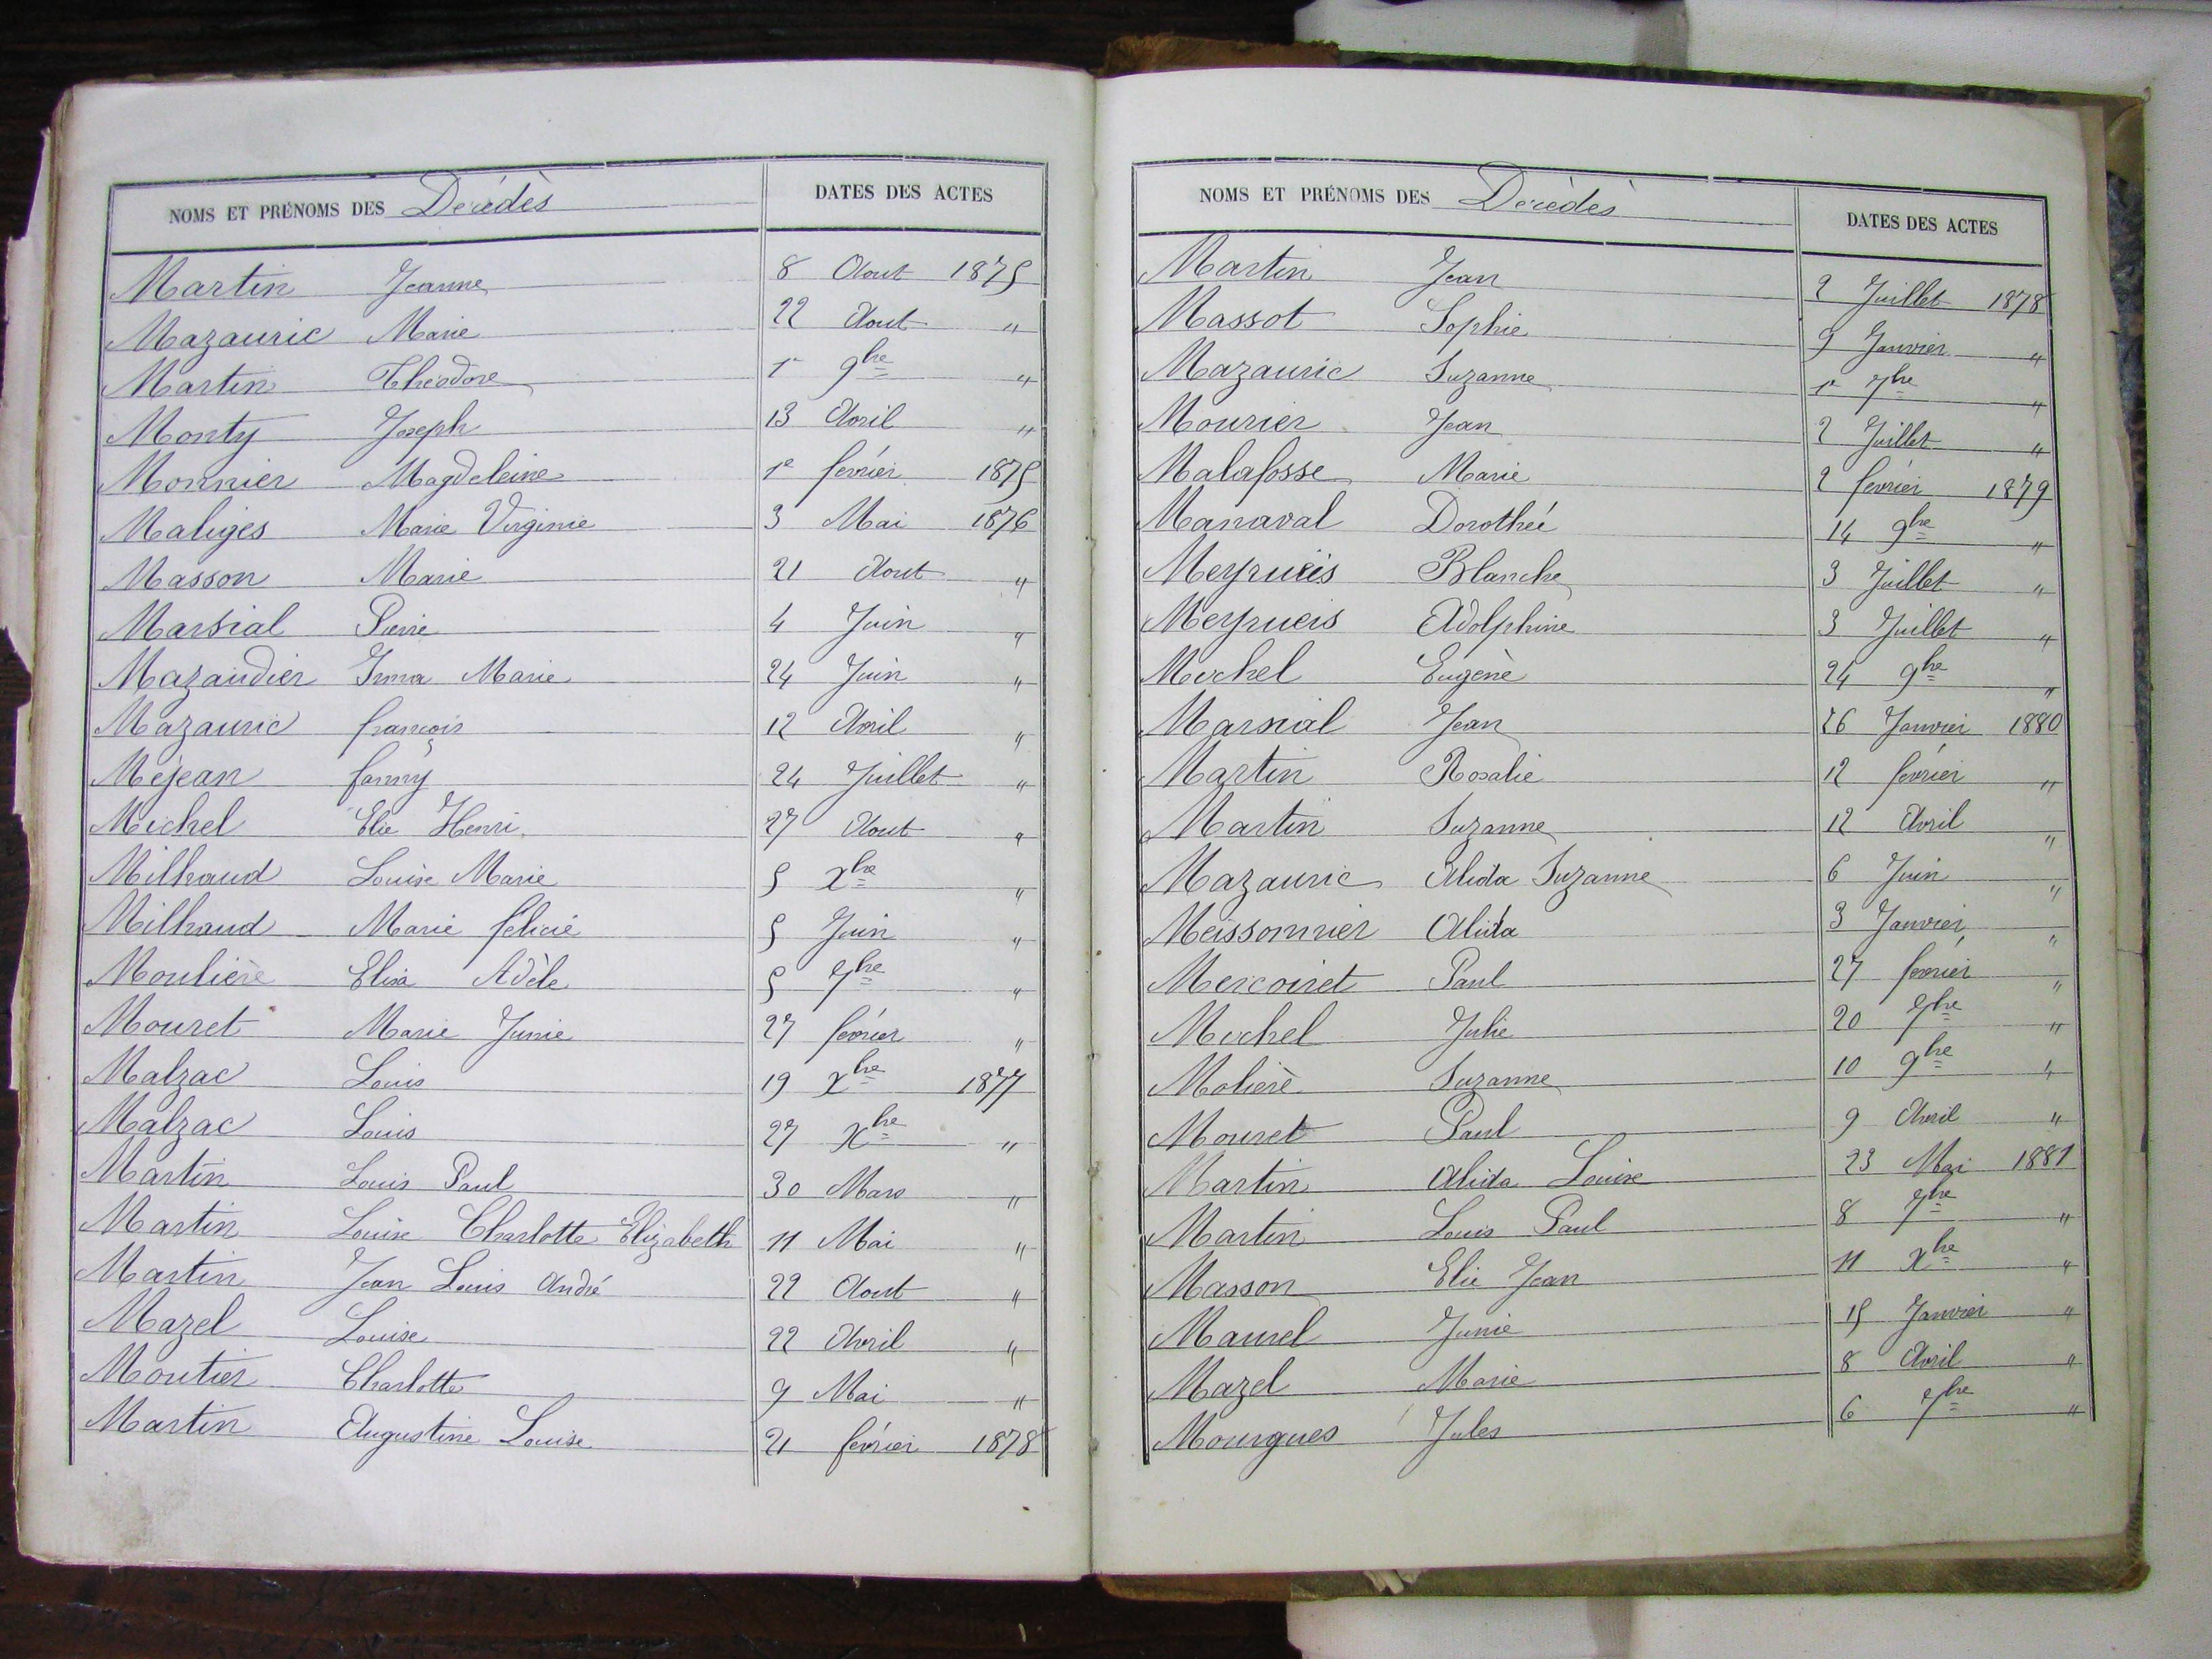 NOMS ET PRÉNOMS DES Décédès DATES DES ACTES
Martin Jeanne 8 Aout 1875
Mazauric Marie 22 Aout "
Martin Théodore 1er 9bre "
Monty Joseph 13 Avril "
Monnier Magdeleine 1er fevrier 1875
Maliges Marie Virginie 3 Mai 1876
Masson Marie 21 Aout "
Marsial Pierre 4 Juin "
Mazaudier Irma Marie 24 Juin "
Mazauric françois 12 Avril "
Mejean fanny 24 Juillet "
Michel Elie Henri 27 Aout "
Milhaud Louise Marie 5 Xbre "
Milhaud Marie félicié 5 Juin "
Moulière Elisa Adèle 5 7bre "
Mouret Marie Junie 27 février "
Malzac Louis 19 Xbre 1877
Malzac Louis 27 Xbre "
Martin Louis Paul 30 Mars "
Martin Louise Charlotte Elizabeth 11 Mai "
Martin Jean Louis André 22 Aout "
Mazel Louise 22 Avril "
Moutier Charlotte 9 Mai "
Martin Augustine Louise 21 février 1878
NOMS ET PRÉNOMS DES Décédés DATES DES ACTES
Martin Jean 2 Juillet 1878
Massot Sophie 9 Janvier "
Mazauric Suzanne 1er 7bre "
Mourier Jean 2 Juillet "
Malafosse Marie 2 fevrier 1879
Manaval Dorothée 14 9bre "
Meyrueis Blanche 3 Juillet "
Meyrueis Adolphine 3 Juillet "
Michel Eugène 24 9bre "
Marsial Jean 26 Janvier 1880
Martin Rosalie 12 fevrier "
Martin Suzanne 12 Avril "
Mazauric Alida Suzanne 6 Juin "
Meissonnier Alida 3 Janvier "
Mercoiret Paul 27 fevrier "
Michel Julie 20 7bre "
Molière Suzanne 10 9bre "
Mouret Paul 9 Avril "
Martin Alida Louise 23 Mai 1881
Martin Louis Paul 8 7bre "
Masson Elie Jean 11 Xbre "
Maurel Junie 15 Janvier "
Mazel Marie 8 Avril "
Mourgues Jules 6 7bre "